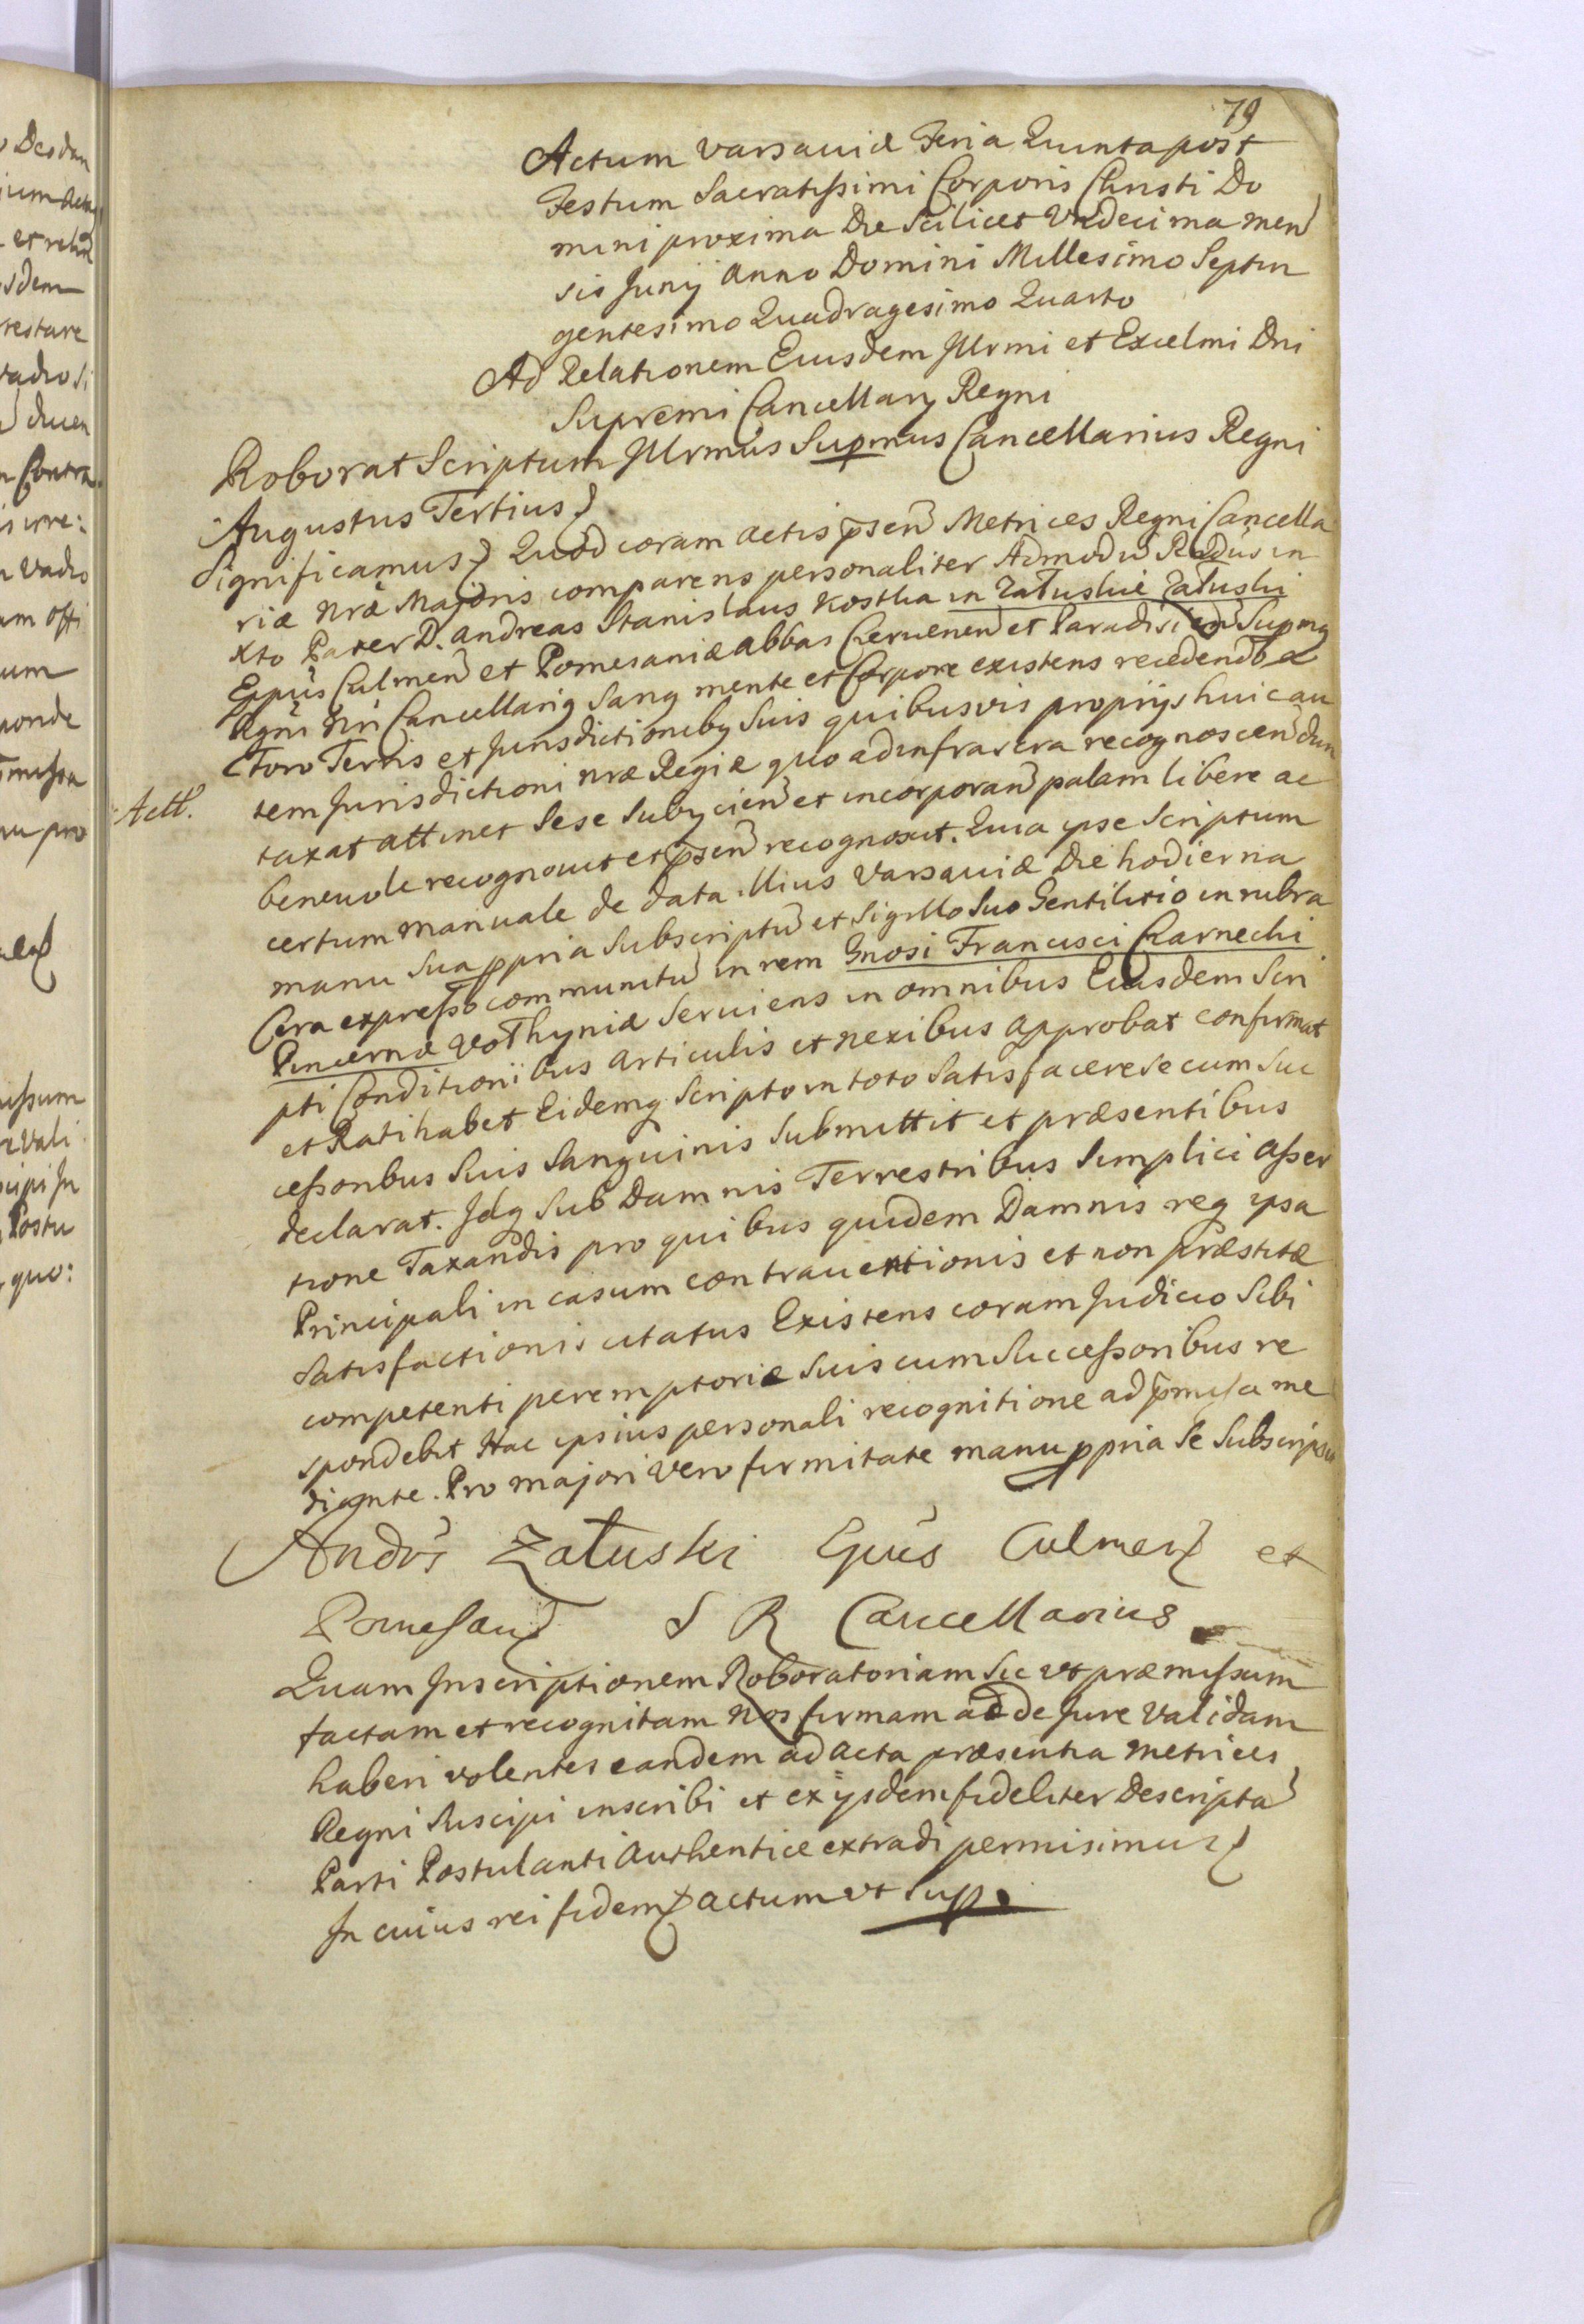 79
Actum Varsaviæ Feria Quinta post
Festum Sacratissimi Corporis Christi Do
mini proxima Die Scilicet Undecima men
sis Junij Anno Domini Millesimo Septin
gentesimo Quadragesimo Quarto
Ad Relationem Eiusdem Jllrmi et Excelmi Dni
Supremi Cancellarij Regni
Roborat Scriptum Jllrmus Supmus Cancellarius Regni
Augustus Tertius
Significamus Quod coram Actis psen Metrices Regni Cancella
riæ nræ Majoris comparens personaliter Admodu Rndus in
Xto Pater D. Andreas Stanislaus Kostka in Załuskie Załuski
Eppus Culmen et Pomesaniæ Abbas Czerwenen et Paradisien Supmq
Rgni nri Cancellariq Sanq mente et Corpore existens recedendo a
Foro Terris et Jurisdictionibq Suis quibusvis proprijs huic au
tem Jurisdictioni nræ Regiæ quo ad infrascra recognoscen dun
Actt.
taxat attinet Sese Subijcien et incorporan palam libere ac
benevole recognovit et psen recognoscit. Quia ipse Scriptum
certum manuale de data illius Varsaviæ Die hodierna
manu Sua ppria Subscriptu et Sigillo Suo Gentilitio in rubra
Cera expresso communitu in rem Gnosi Francisci Czarnecki
Pincernæ Vołhyniæ Serviens in omnibus Eiusdem Scri
pti Conditionibus Articulis et nexibus Approbat confirmat
et Ratihabet Eidemq Scripto in toto Satisfacere Se cum Suc
cessoribus Suis Sanguinis Submittit et præsentibus
declarat. Jdq Sub Damnis Terrestribus Simplici Asser
tione Taxandis pro quibus quidem Damnis req ipsa
Principali in casum contraventionis et non præstitæ
Satisfactionis citatus Existens coram Judicio Sibi
competenti peremptorie Suis cum Successoribus re
spondebit Hac ipsius personali recognitione ad pmissa me
diante. Pro majori vero firmitate manu ppria Se Subscripsit
Andrs Załuski Epus Culmen et
Pomesan S R Cancellarius
Quam Inscriptionem Roboratoriam Sic ut præmissum
factam et recognitam Nos firmam ac de Jure Validam
haberi volentes eandem ad acta præsentia Metrices
Regni Suscipi inscribi et ex ijsdem fideliter Descripta
Parti Postulanti Authentice extradi permisimus
In cuius rei fidem Actum ut Sup.